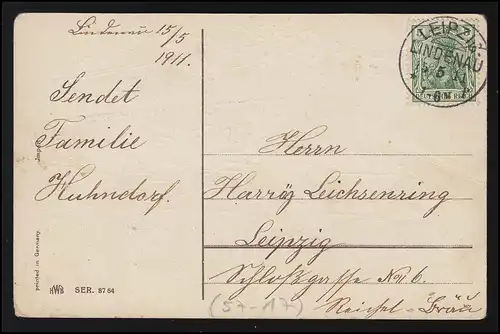 Lindenau 15/5
1911.
Sendet
Familie
Huhndorf.
LEIPZIG
LINDENAU
5 11
6
Herrn
Harräz Leichsenring
Leipzig
Schloßgasse No 6.
Reichel-Bräu
(57-17)
Import
printed in Germany.
HWB SER. 8764